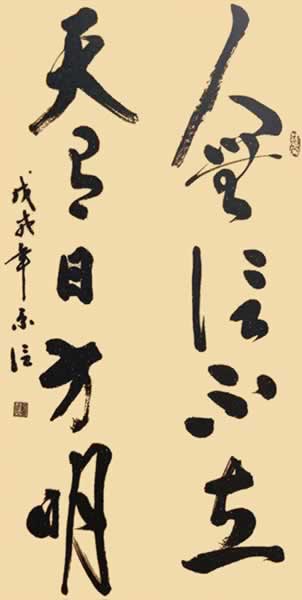 人無信不立
天有日方明
戊戌年